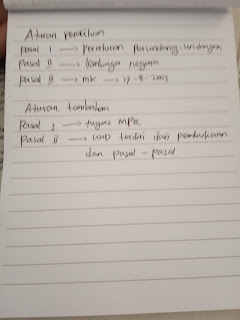 Aturan peralihan
Pasal I → Peraturan Perundang-undangan
Pasal II → lembaga negara
Pasal II → MK → 17-8-2003
Aturan tambahan
Pasal I → tugas MPR
Pasal II → UUD terdiri dari pembukaan
dan pasal - pasal